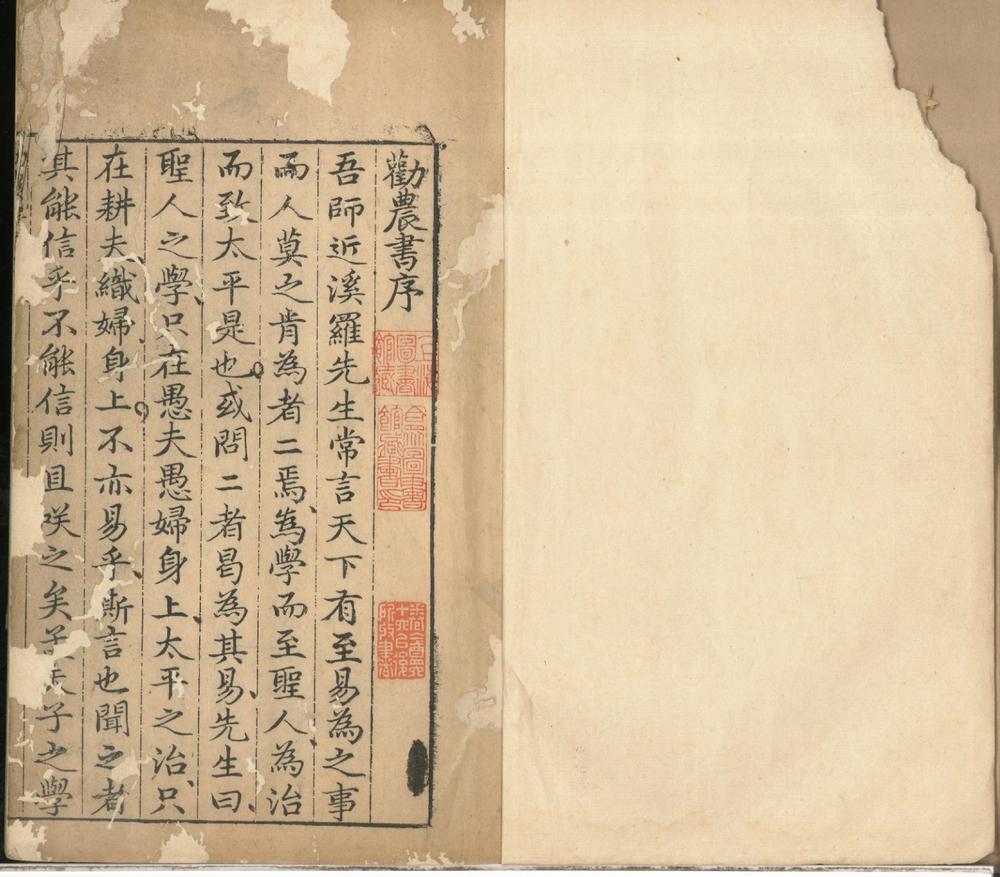 勸農書序
上海圖書館藏
合眾圖書館藏書印
吾師近溪羅先生常言天下有至易為之事
而人莫之肯為者二焉為學而至聖人為治
而致太平是也或問二者曷為其易先生曰
聖人之學只在愚夫愚婦身上太平之治只
在耕夫織婦身上不亦易乎斯言也聞之者
其能信乎不能信則且咲之矣子之學